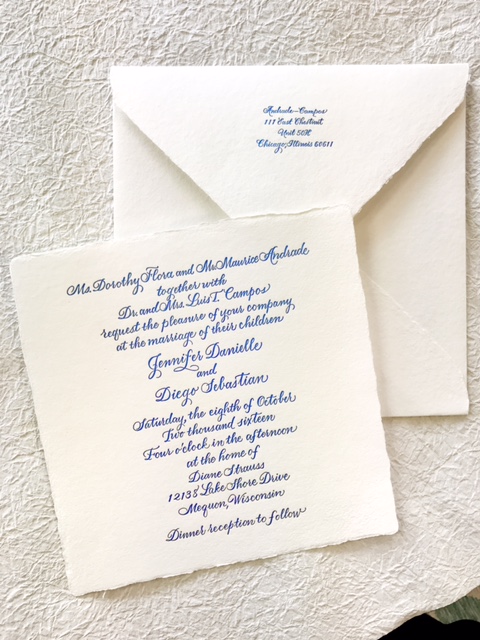 Andrade-Campos
111 East Chestnut
Unit 50H
Chicago, Illinois 60611
Ms. Dorothy Flora and Mr. Maurice Andrade
together with
Dr. and Mrs. Luis T. Campos
request the pleasure of your company
at the marriage of their children
Jennifer Danielle
and
Diego Sebastian
Saturday, the eighth of October
Two thousand sixteen
Four o'clock in the afternoon
at the home of
Diane Strauss
12138 Lake Shore Drive
Mequon, Wisconsin
Dinner reception to follow